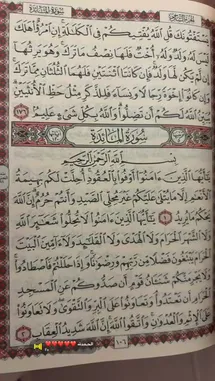 سورة المائدة
الجزء السادس
يستفتونك قل الله يفتيكم في الكلالة إن امرؤا هلك
ليس له ولد وله أخت فلها نصف ما ترك وهو يرثها
إن لم يكن لها ولد فإن كانتا اثنتين فلهما الثلثان مما ترك
وإن كانوا إخوة رجالا ونساء فللذكر مثل حظ الأنثيين
يبين الله لكم أن تضلوا والله بكل شيء عليم ١٧٦
سورة المائدة
بسم الله الرحمن الرحيم
يأيها الذين ءامنوا أوفوا بالعقود أحلت لكم بهيمة
الأنعم إلا ما يتلى عليكم غير محلي الصيد وأنتم حرم إن الله
يحكم ما يريد ١ يأيها الذين ءامنوا لا تحلوا شعئر الله
ولا الشهر الحرام ولا الهدي ولا القلئد ولا ءامين البيت
الحرام يبتغون فضلا من ربهم ورضونا وإذا حللتم فاصطادوا
ولا يجرمنكم شنئان قوم أن صدوكم عن المسجد
الحرام أن تعتدوا وتعاونوا على البر والتقوى ولا تعاونوا
على الإثم والعدون واتقوا الله إن الله شديد العقاب ٢
١٠٦